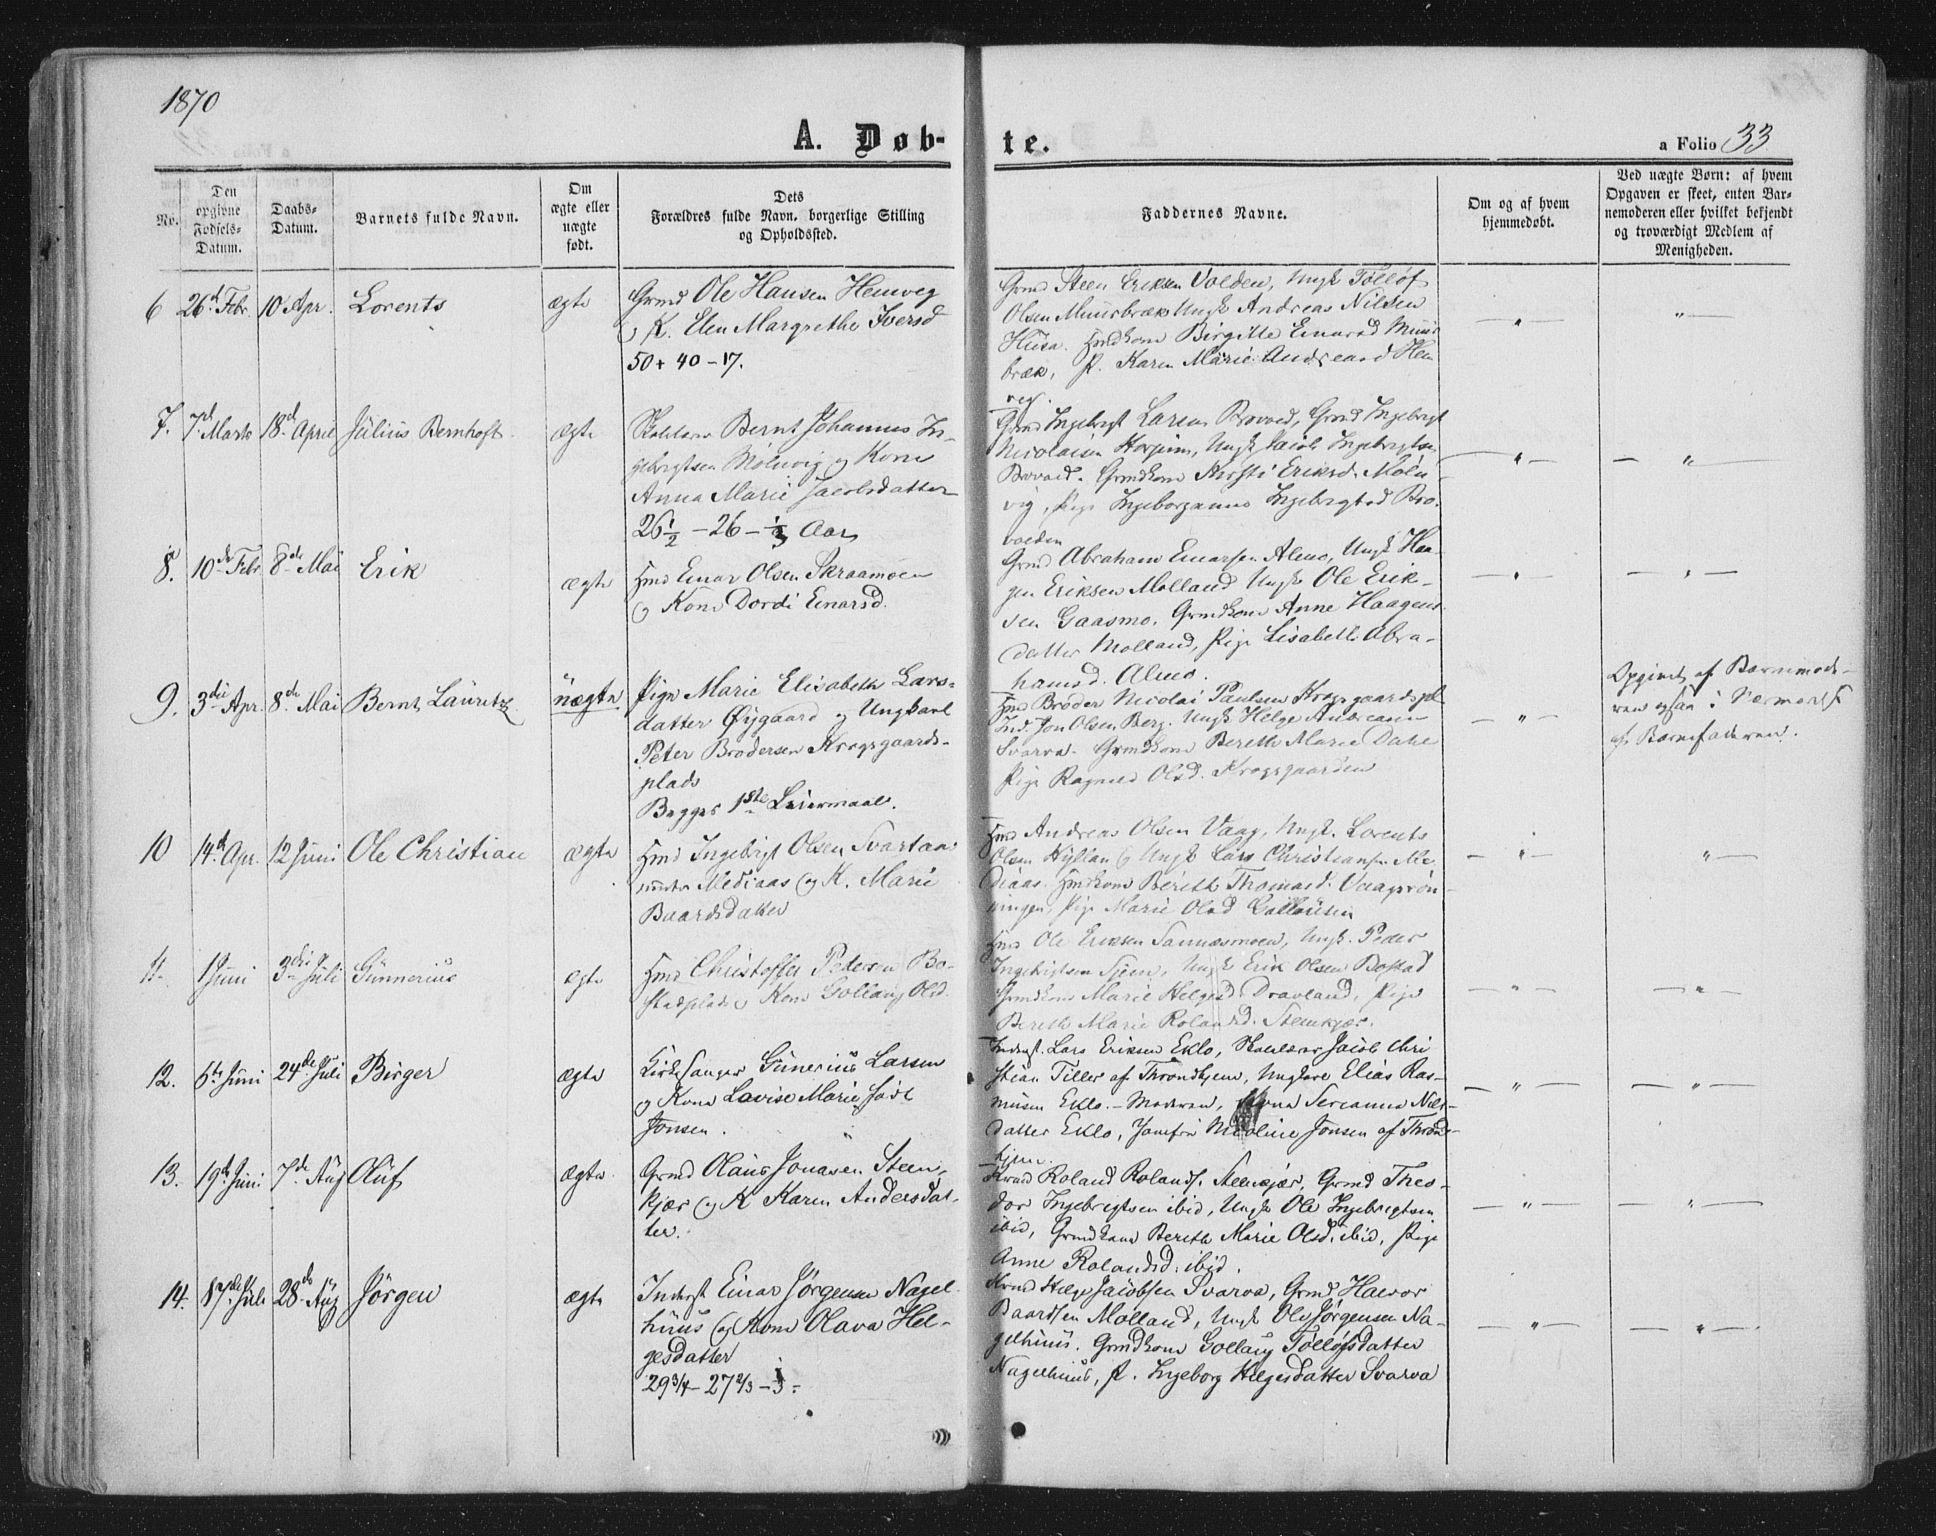 1870
A. Døb-
te.
a Folio 33
No.
Den
opgivne
Fødsels-
Datum.
Daabs-
Datum.
Barnets fulde Navn.
Om
ægte eller
uægte
født.
Dets
Forældres fulde Navn, borgerlige Stilling
og Opholdssted.
Faddernes Navne.
Om og af hvem
hjemmedøbt.
Ved uægte Børn: af hvem
Opgaven er skeet, enten Bar-
nemoderen eller hvilket bekjendt
og troværdigt Medlem af
Menigheden.
6 26d Febr. 10 Apr. Lorents ægte
Grmd Ole Hansen Hemveg
og K. Elen Margrethe Iversd
50 + 40 – 17.
Grmd Steen Eriksen Volden, Ungk Tolløf
Olsen Muusbræk Ungk Andreas Nilsen
Husa. Hmdkone Birgitte Einarsd Muus
bræk, P. Karen Marie Andreasd Hem
veg.
7. 7d Marts 18d April Julius Bernhoft ægte
Skolelærer Bernt Johannes In-
gebrigtsen Molnvig og Kone
Anna Marie Jacobsdatter
26½ – 26 – Aar
Grmd Ingebrigt Larsen Brovold, Grmd Ingebrigt
Nicolaisen Horjem, Ungk Jacob Ingebrigtsen
Brovold. Grmdkone Kirsti Eriksd. Moln
vig, Pige Ingeborganna Ingebrigtsd Bro-
volden
8. 10de Febr 8de Mai Erik ægte
Hmd Einar Olsen Skraamoen
og Kone Dordi Einarsd.
Grmd Abraham Einarsen Almo, Ungk Haa-
gen Eriksen Molland Ungk Ole Erik-
sen Gaasmo. Grmdkone Anne Haagens
datter Molland, Pige Lisabeth Abra-
hamsd. Almo.
9. 3die Apr. 8de Mai Bernt Lauritz uægte
Pige Marie Elisabeth Lars-
datter Øygaard og Ungkarl
Peter Brodersen Krogsgaards-
plads
Begges 1ste Leiermaal.
Hmd Broder Nicolai Paulsen Krogsgaardspl
Ind. Jon Olsen Berg. Ungk Helge Andreasen
Svarva. Grmdkone Bereth Marie Dahl
Pige Ragnild Olsd. Krogsgaarden
Opgivet af Barnemode-
ren ogsaa i
af Barnefaderen.
10 14d Apr. 12 Juni Ole Christian ægte
Hmd Ingebrigt Olsen Svartaas
Mediaas og K. Marie
Baardsdatter
Hmd Andreas Olsen Vaag, Ungk. Lorents
Olsen Hyllan og Ungk Lars Christiansen Me
diaas. Hmdkone Bereth Thomasd. Vaagsrøn-
ningen, Pige Marie Olsd
11 1 Juni 3die Juli Gunnerius ægte
Hmd Christoffer Petersen Bo-
stadplads og Kone Gollaug Olsd.
Hmd Ole Eriksen Sannæsmoen, Ungk. Peder
Ingebrigtsen Sjem, Ungk Erik Olsen Bostad
Grmdkone Marie Helgesd. Dravland, Pige
Bereth Marie Rolandsd. Steenkjær.
12. 6te Juni 24de Juli Birger ægte
Kirkesanger Gunerius Larsen
og Kone Lovise Marie født
Jonsen.
Inderst. Lars Eriksen Eklo, Skolelærer Jacob Chri
stian Tiller af Throndhjem, Ungkare Elias Ras-
musen Eklo. – Moderen, Kone Sereanna Nils-
datter Eklo, Jomfru Meoline Jonsen af Thrond-
hjem.
13. 19de Juni 7de Aug Oluf ægte
Grmd Olaus Jonasen Steen-
kjær og K Karen Andersdat-
ter.
Kmd Roland Rolands. Steenkjær, Grmd Theo-
dor Ingebrigtsen ibid, Ungk Ole Ingebrigtsen
ibid, Grmdkone Bereth Marie Olsd. ibid, Pige
Anne Rolandsd. ibid.
14. 17de Juli 28de Aug Jørgen ægte
Inderst Einar Jørgensen Nagel-
huus og Kone Olava Hel-
gesdatter
29¾ – 27 2/3 –
Kmd Helge Jacobsen Svarva, Grmd Haevor
Baardsen Molland, Ungk Ole Jørgensen Na-
gelhuus. Grmdkone Gollaug Tolløfsdatter
Nagelhuus, P. Ingeborg Helgesdatter Svarva